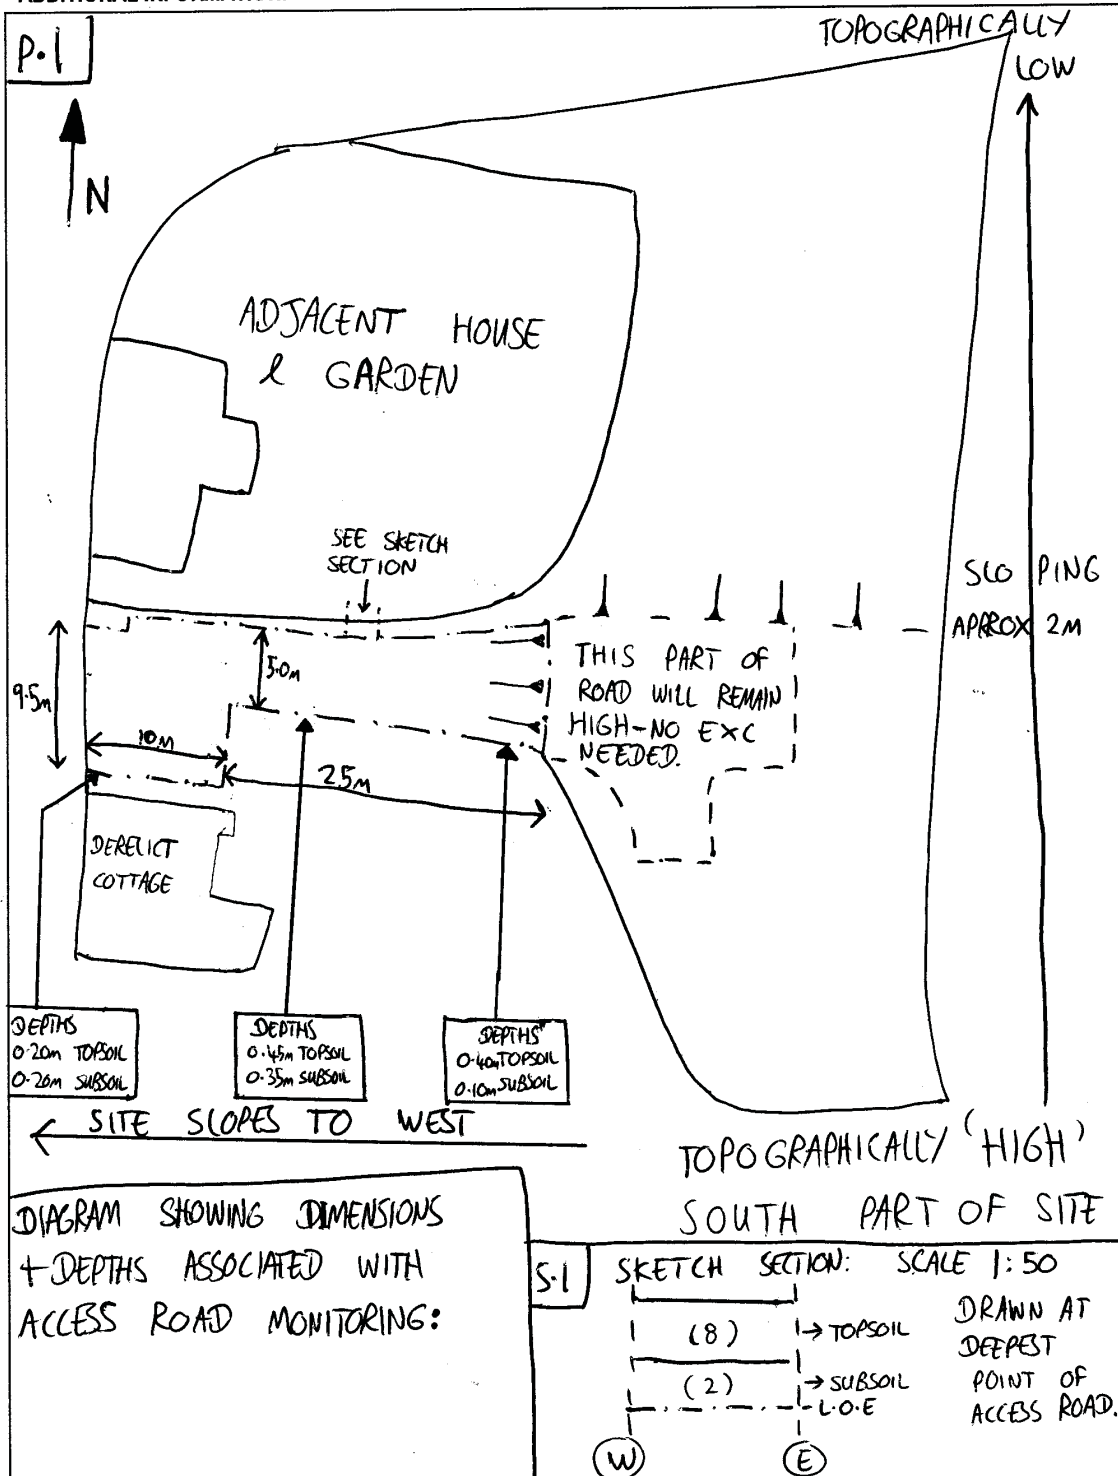 P.1
N
TOPOGRAPHICALLY
LOW
ADJACENT HOUSE
& GARDEN
SEE SKETCH
SECTION
SLOPING
APPROX 2M
9.5m
5.0m
10m
25m
THIS PART OF
ROAD WILL REMAIN
HIGH-NO EXC
NEEDED.
DERELICT
COTTAGE
DEPTHS
0.20m TOPSOIL
0.20m SUBSOIL
DEPTHS
0.45m TOPSOIL
0.35m SUBSOIL
DEPTHS
0.40m TOPSOIL
0.10m SUBSOIL
SITE SLOPES TO WEST
TOPOGRAPHICALLY 'HIGH'
SOUTH PART OF SITE
DIAGRAM SHOWING DIMENSIONS
+ DEPTHS ASSOCIATED WITH
ACCESS ROAD MONITORING:
S.1
SKETCH SECTION: SCALE 1:50
(8)
→ TOPSOIL
(2)
→ SUBSOIL
L.O.E
DRAWN AT
DEEPEST
POINT OF
ACCESS ROAD.
W
E